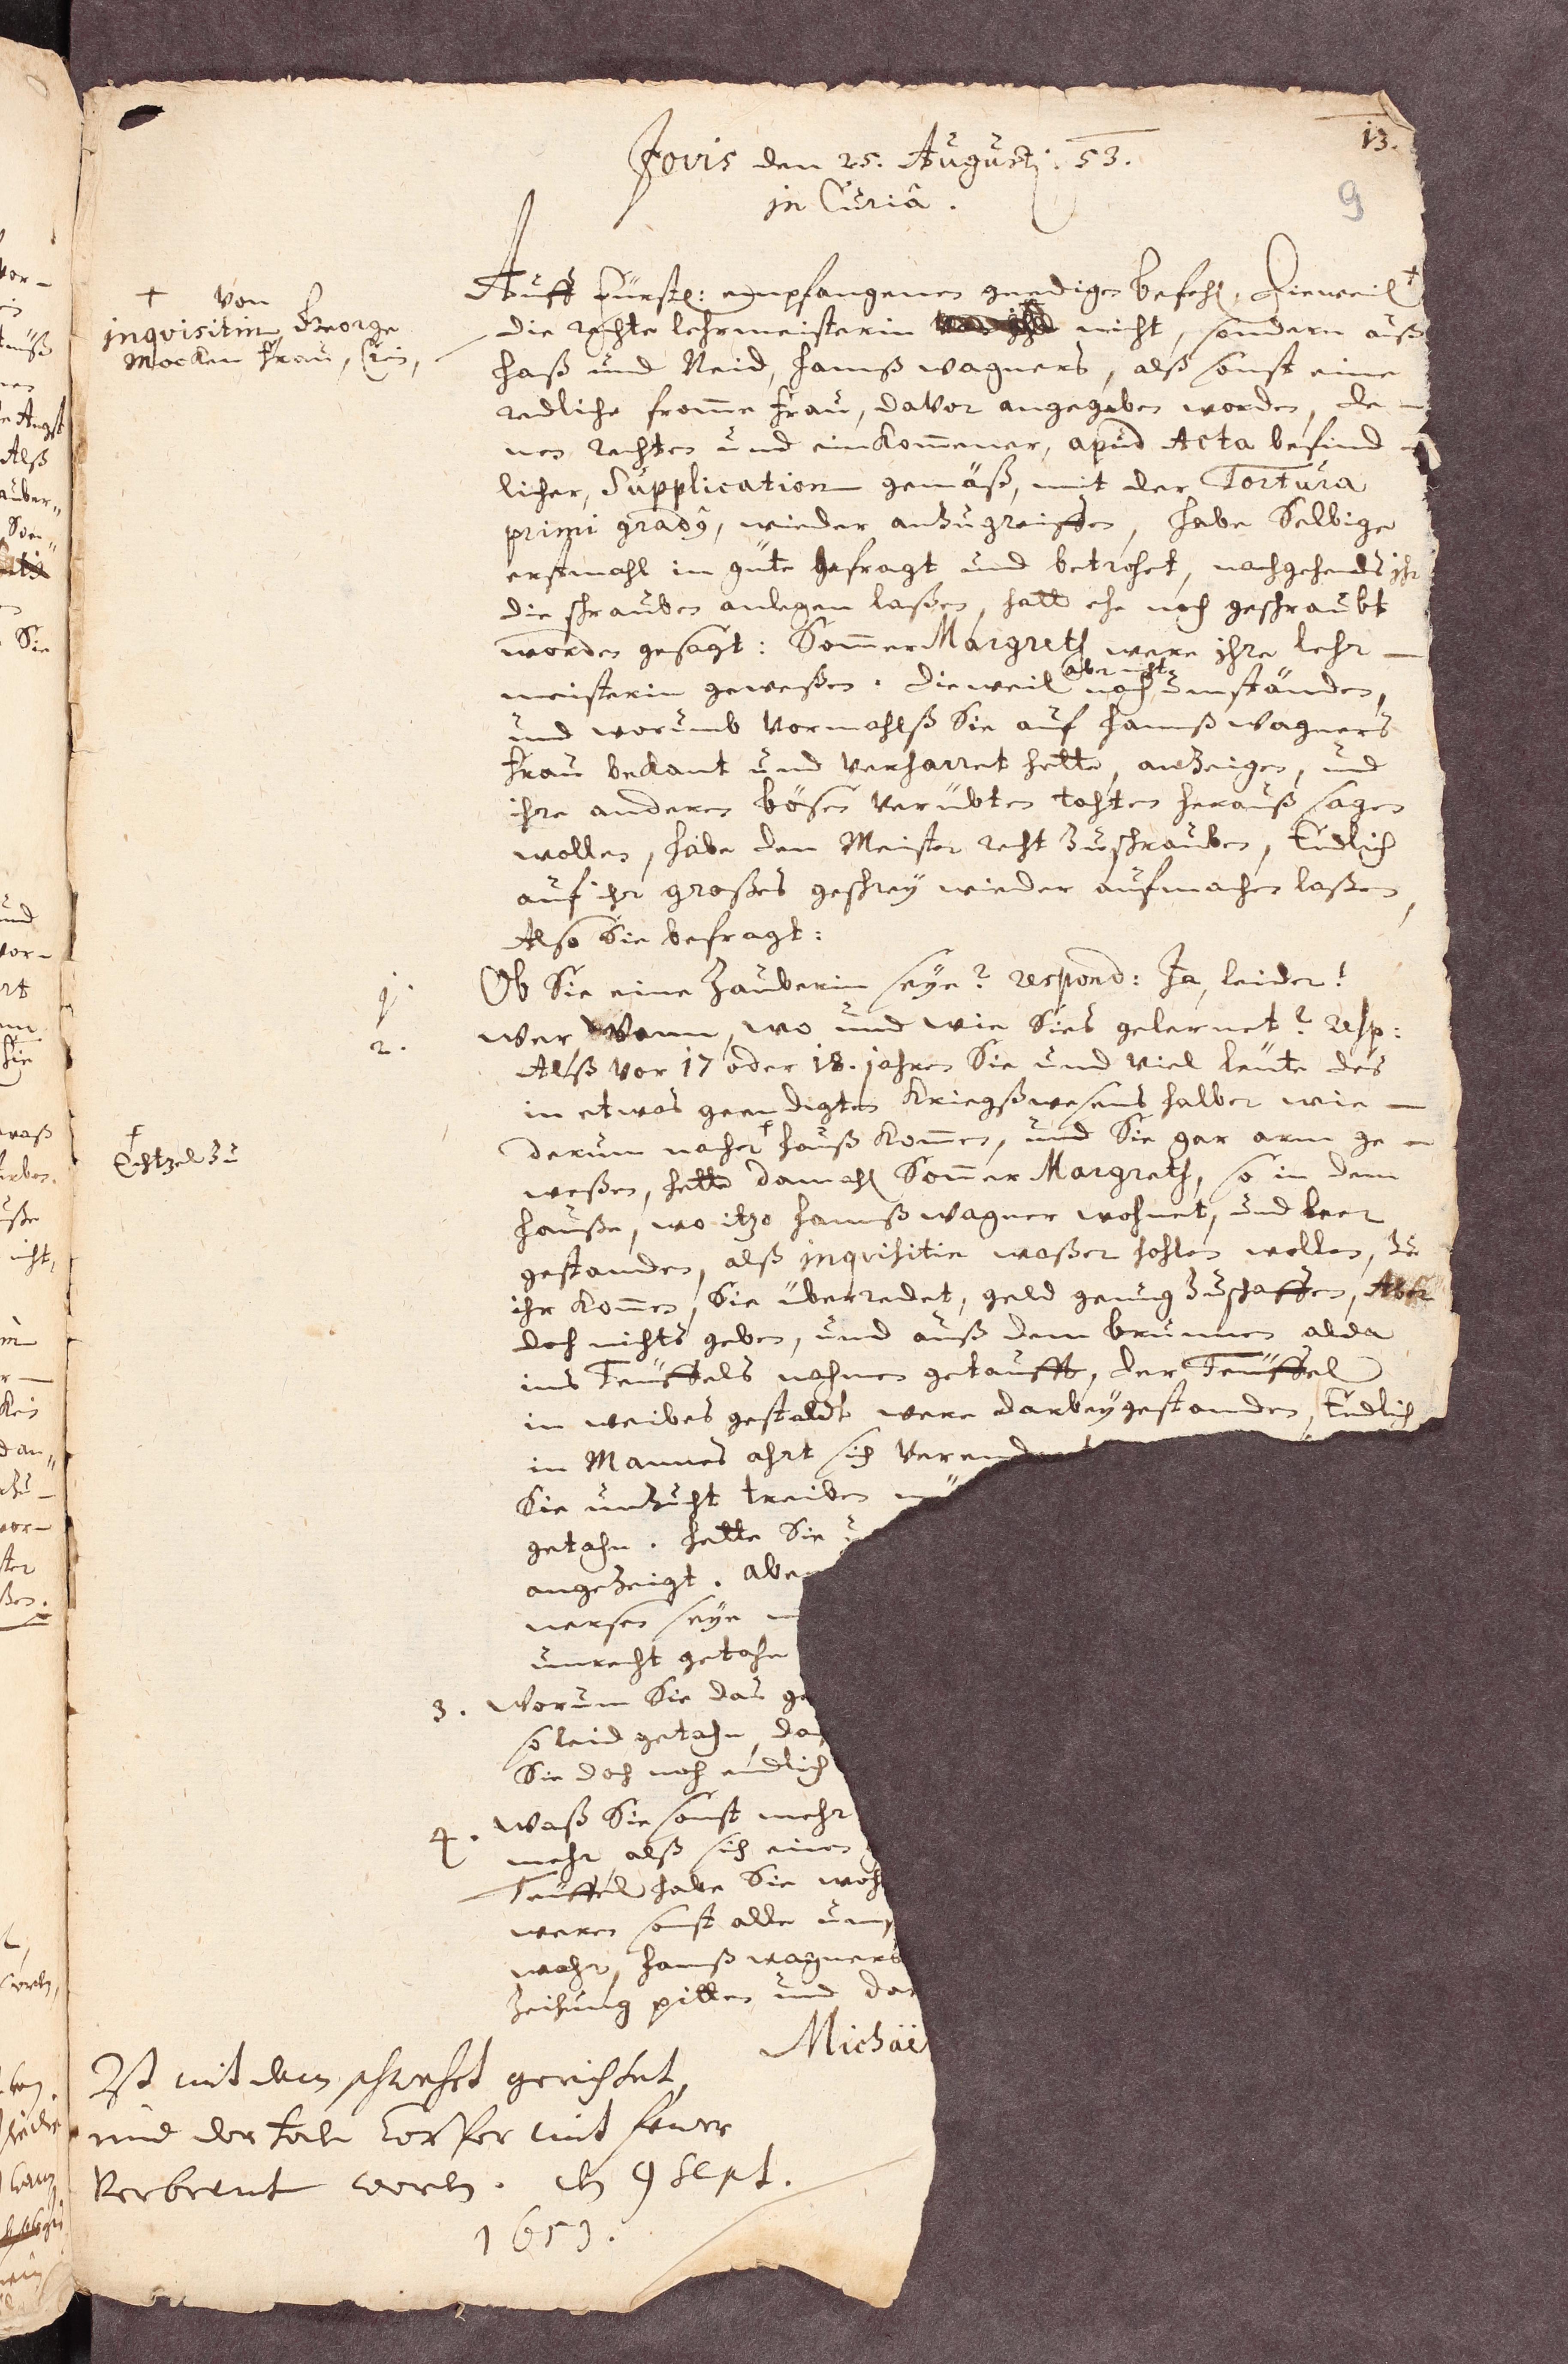 13.
9
Jovis den 25. Augusti. 53.
in Curiâ.
Auff Fürstl: empfangenen gnedigen befehl, Dieweil †
die rechte lehrmeisterin nicht, sondern auß
haß und Neid, hanß wagners, alß sonst eine
redliche from̄e frau, davor angegeben worden, de-
nen rechten und einkom̄ener, apud Acta befind-
licher, Supplication gemäß, mit der Tortura
primi gradg, wieder anzugreiffen, habe Selbige
erstmahl in güte gefragt und betrohet, nachgehends ihr
die schrauben anlegen laßen, hatt ehe noch geschraubt
worden gesagt: Som̄er Margreth were ihre lehr-
meisterin geweßen. dieweil aber nicht nach umständen,
und worumb vormahlß Sie auf hanß wagners
frau bekant und verharret hette, anzeigen, und
ihre anderen bösen verübten tahten herauß sagen
wollen, habe den Meister recht zuschrauben, Endlich
auf ihr großes geschrey wieder aufmachen laßen,
Also Sie befragt:
† von
inqvisitin George
Mocken frau, Cris,
1. Ob Sie eine Zauberin seye? respond: Ja, leider!
2. Wer, Wann, wo und wie Sies gelernet? resp:
Alß vor 17 oder 18. jahren Sie und viel leute des
in etwas geendigten Kriegßwesens halber wie-
derum nacher † hauß kom̄en, und Sie gar arm ge-
weßen, hette damahl Som̄er Margreth, so in dem
hauße, wo itzo hanß wagner wohnet, und leer
gestanden, alß inqvisitin waßer hohlen wollen, zu
ihr kom̄en, Sie überredet, geld genug zuschaffen, Aber
doch nichts geben, und auß dem brunnen alda
ins Teuffels nahmen getaufft, der Teuffel
in weibes gestaldt were darbey gestanden, Endlich
in Mannes ahrt sich verend
Sie unzucht treiben
getahn. hette Sie
angezeigt. Aber
nersen seye
unrecht getahn
† Echtzel zu
3. Worum Sie das ge
so leid getahn, da
Sie doch noch endlich
4. Waß Sie sonst mehr
mehr alß sich einen
Teuffel habe Sie woh
weren sonst alle umb
wahr, hanß wagners
zeihung pitten und da
Michäe
Ist mit dem schwehrt gerichtet,
und der tode Corper mit fewer
verbrent worden. den 9 Sept.
1653.